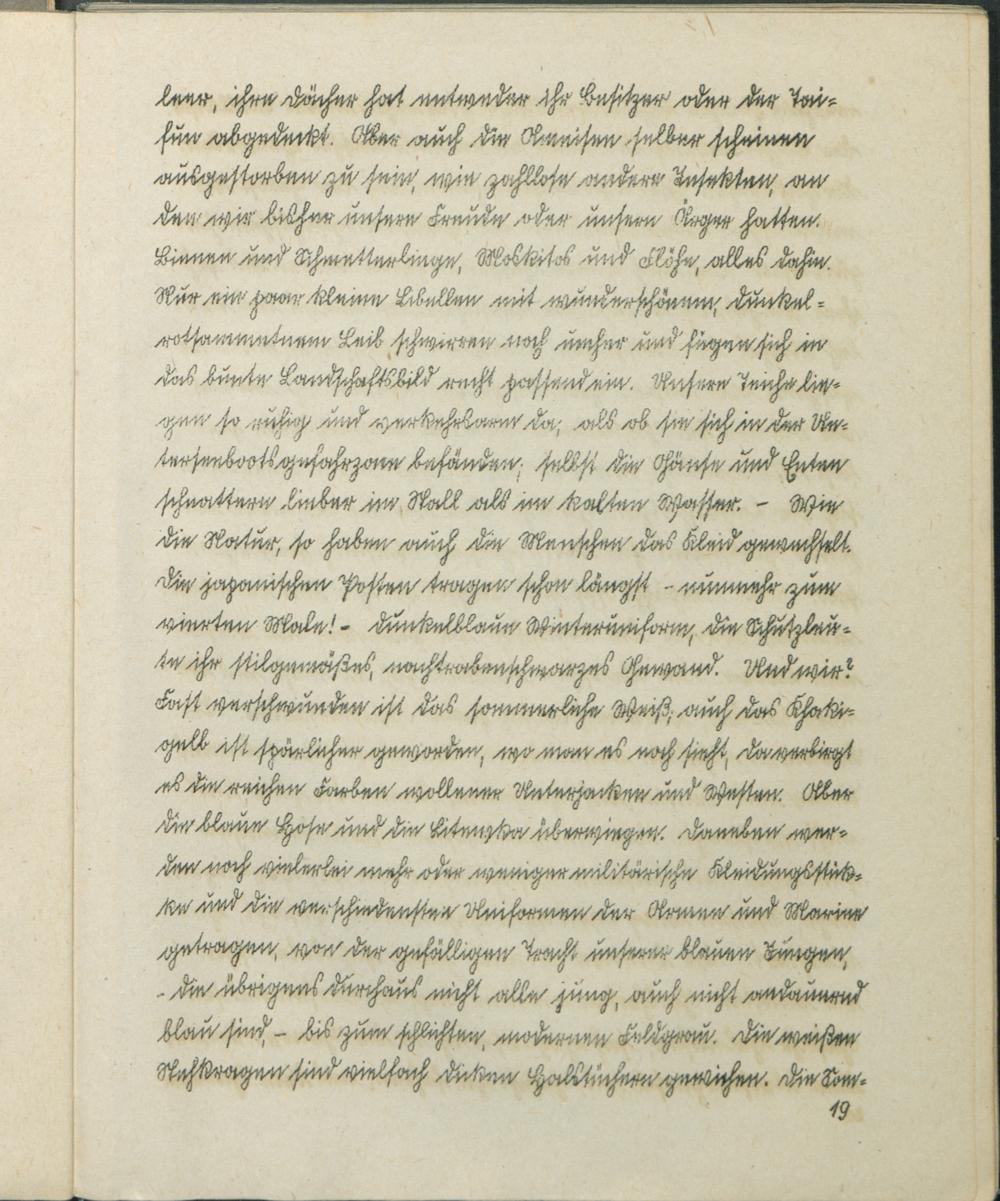 leer, ihre Dächer hat entweder ihr Besitzer oder der Tai-
fun abgedeckt. Aber auch die Ameisen selber scheinen
ausgestorben zu sein, wie zahllose andere Insekten, an
den wir bisher unsere Freude oder unsern Ärger hatten.
Bienen und Schmetterlinge, Moskitos und Flöhe, alles dahin.
Nur ein paar kleine Libellen mit wunderschönem, dunkel-
rotsammetnem Leib schwirren noch umher und fügen sich in
das bunte Landschaftsbild recht passend ein. Unsere Teiche lie-
gen so ruhig und verkehrsarm da, als ob sie sich in der Un-
terseebootsgefahrzone befänden; selbst die Gänse und Enten
schnattern lieber im Stall als im kalten Wasser. – Wie
die Natur, so haben auch die Menschen das Kleid gewechselt.
Die japanischen Posten tragen schon längst – nunmehr zum
vierten Male! – dunkelblaue Winteruniform, die Schutzleu-
te ihr stilgemäßes, nachtrabenschwarzes Gewand. Und wir?
Fast verschwunden ist das sommerliche Weiß; auch das Khaki-
gelb ist spärlicher geworden, wo man es noch sieht, da verbirgt
es die reichen Farben wollener Unterjacken und Westen. Aber
die blaue Hose und die Litewka überwiegen. Daneben wer-
den noch vielerlei mehr oder weniger militärische Kleidungsstük-
ke und die verschiedensten Uniformen der Armee und Marine
getragen, von der gefälligen Tracht unserer blauen Jungen,
– die übrigens durchaus nicht alle jung, auch nicht andauernd
blau sind, – bis zum schlichten, modernen Feldgrau. Die weißen
Stehkragen sind vielfach dicken Halstüchern gewichen. Die Som-
19